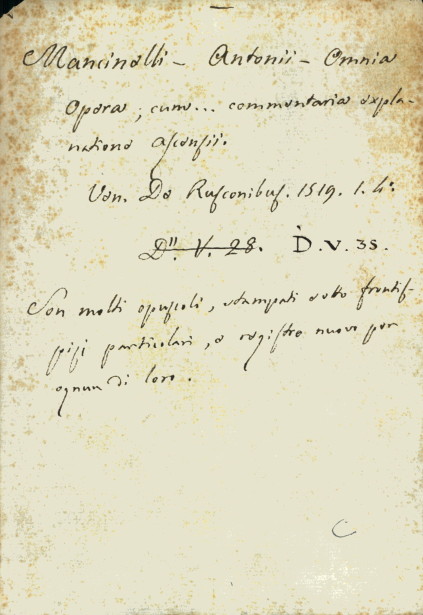 Mancinelli - Antonii - Omnia
Opera, cum... commentaria expla-
natione Ascensii.
Ven. De Rusconibus. 1519. 1. 4°
D''. V. 28. D.V. 35.
Son molti opuscoli, stampati sotto frontis-
pizj particolari, e registro nuovo per
ognun di loro.
C